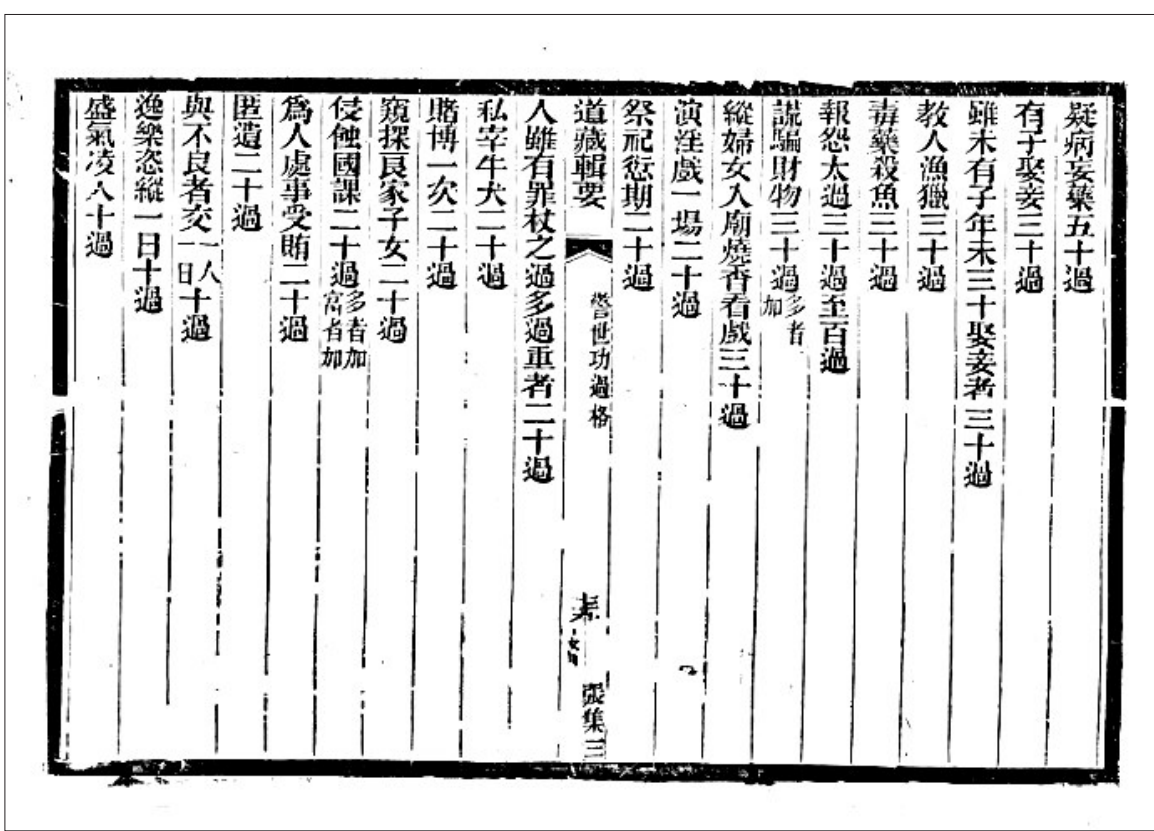 疑病妄藥五十過
有子娶妾三十過
雖未有子年未三十娶妾者三十過
教人漁獵三十過
毒藥殺魚三十過
報怨太過三十過至百過
謊騙財物三十過多者加
縱婦女入廟燒香看戲三十過
演淫戲一場二十過
祭祀愆期二十過
道藏輯要
警世功過格
張集三
人雖有罪杖之過多過重者二十過
私宰牛犬二十過
賭博一次二十過
窺探良家子女二十過
侵蝕國課二十過多者加富者加
爲人處事受賄二十過
匿遺二十過
與不良者交一人一日十過
逸樂恣縱一日十過
盛氣凌人十過